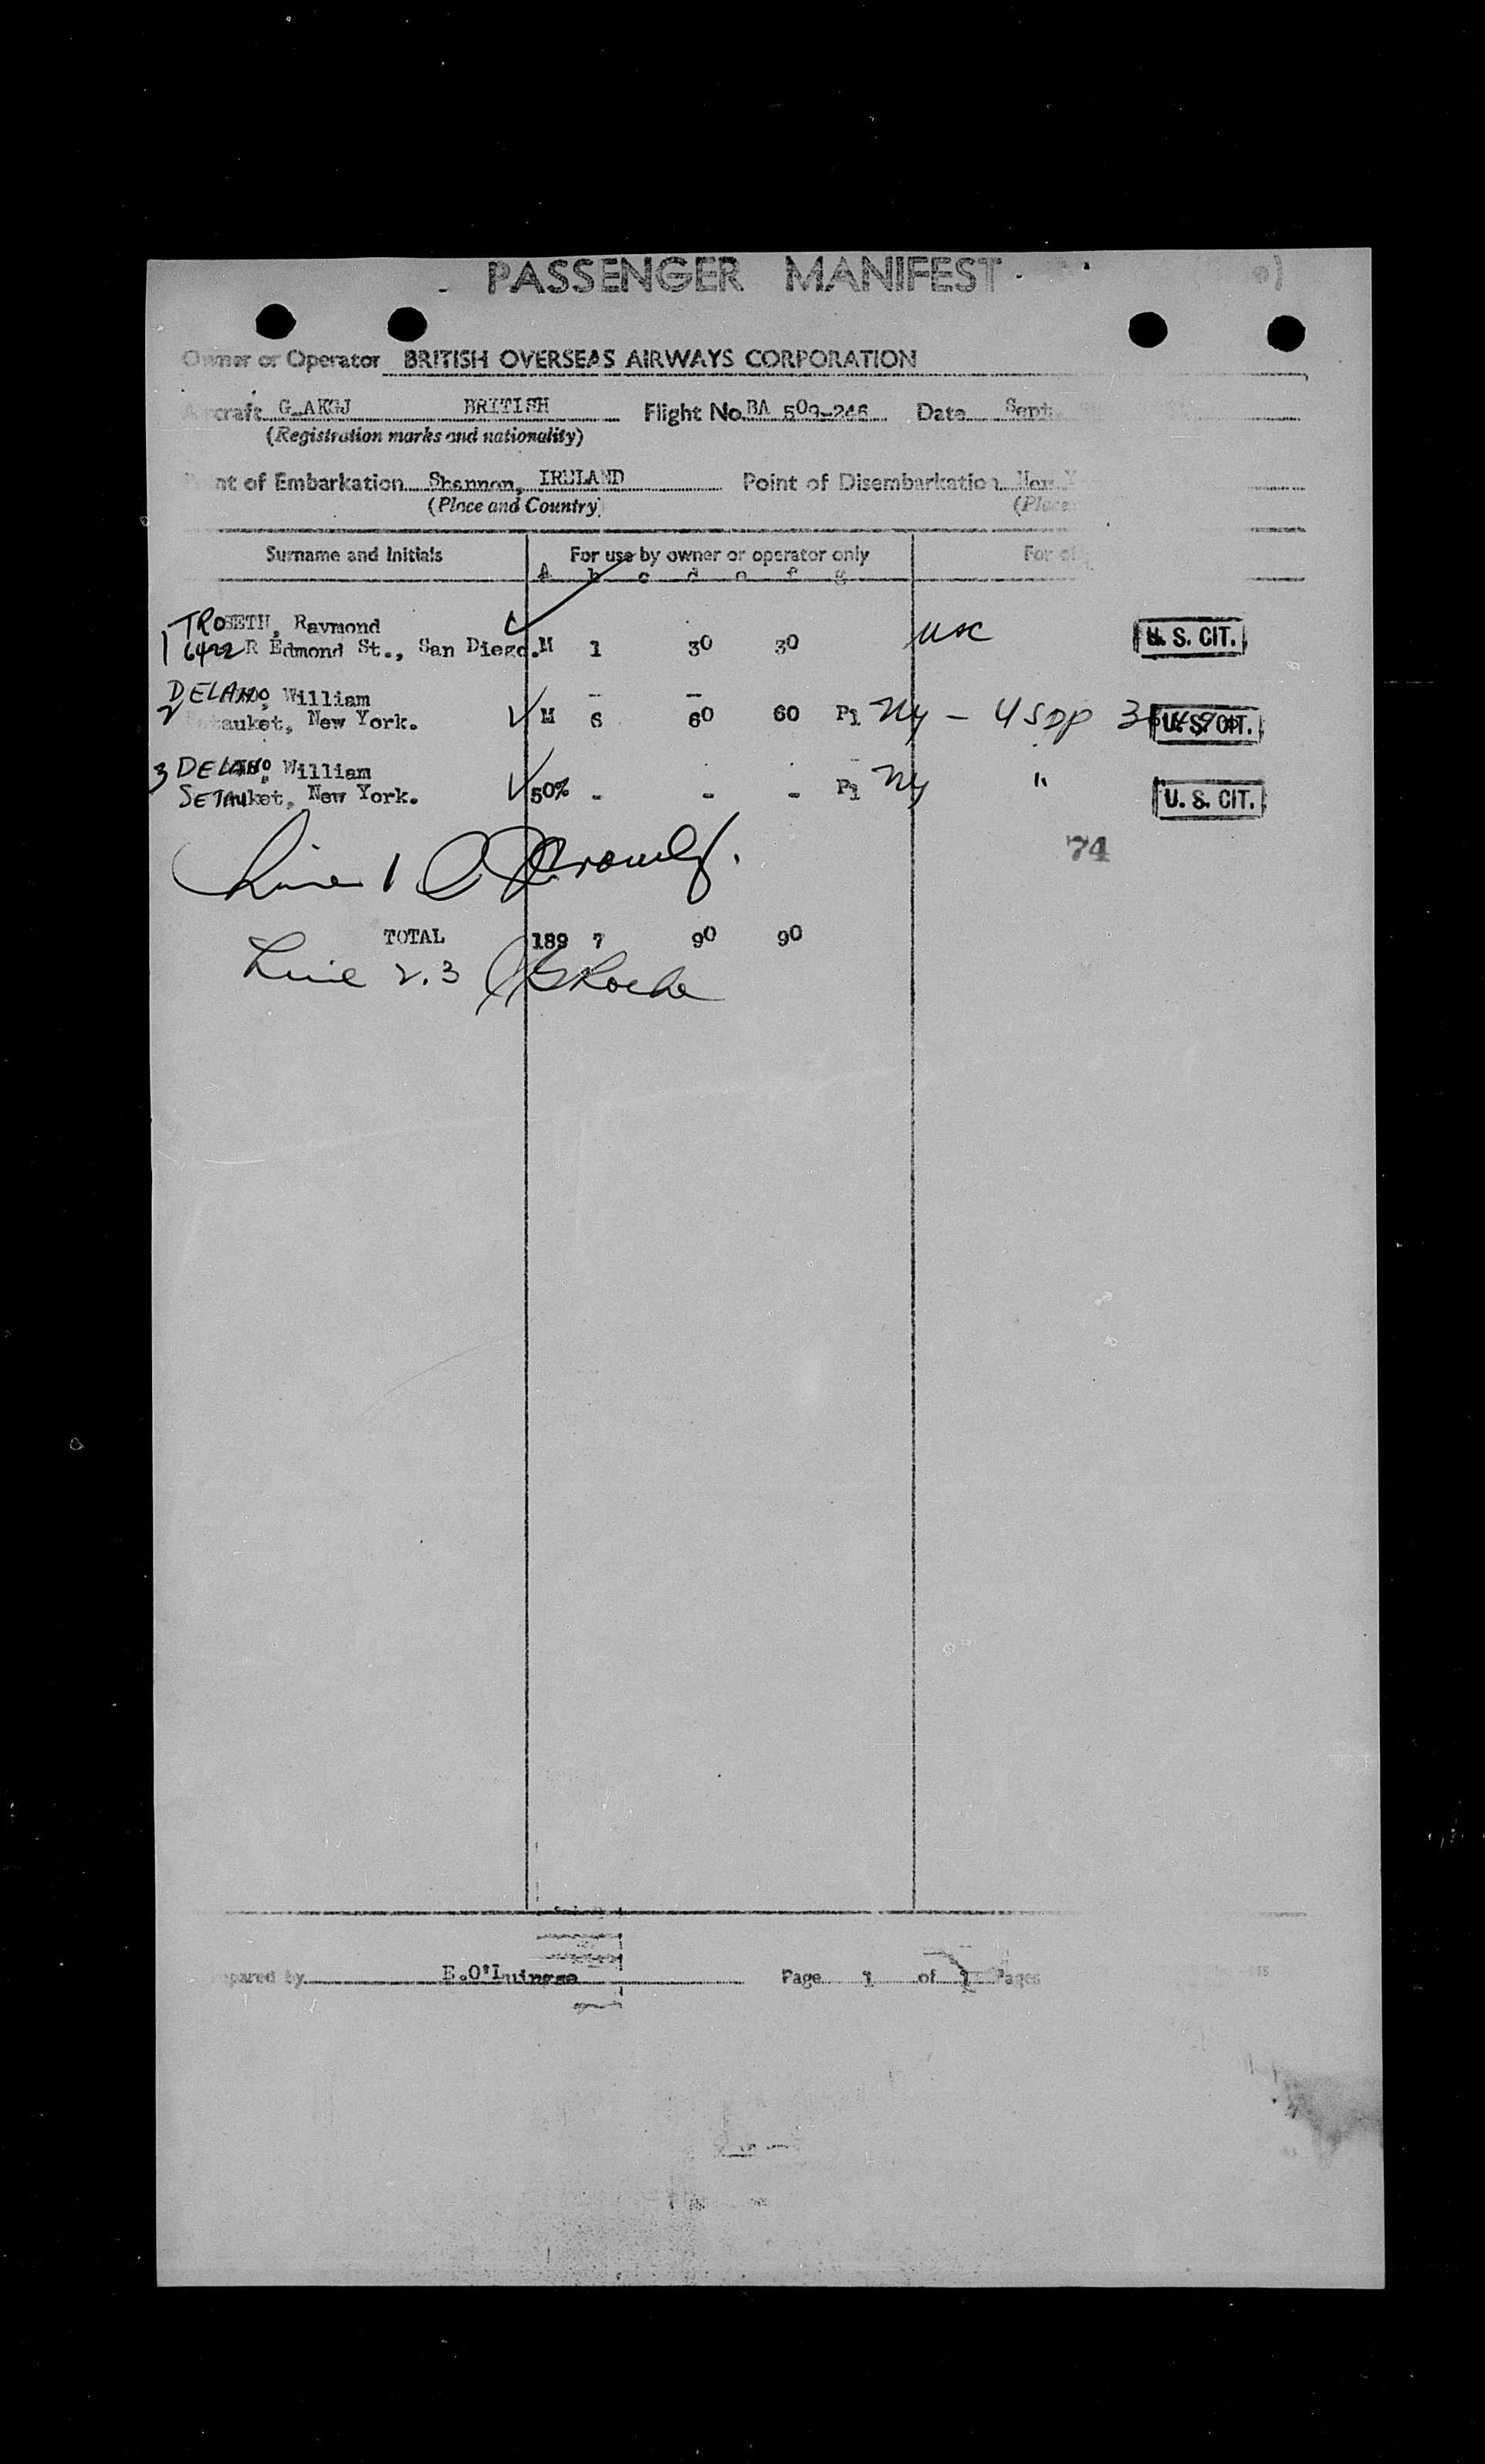 PASSENGER MANIFEST
Owner or Operator BRITISH OVERSEAS AIRWAYS CORPORATION
Aircraft G-AKGJ BRITISH Flight No. BA 509-246 Date Sept.
(Registration marks and nationality)
Point of Embarkation Shannon, IRELAND Point of Disembarkation New Y
(Place and Country) (Place
Surname and Initials For use by owner or operator only For of
A b c d e f g
TROSETH, Raymond
1 6422 R Edmond St., San Diego. M 1 30 30 USC U. S. CIT.
DELANO, William
2 Setauket, New York. M 6 60 60 P1 NY - USPP U. S. CIT.
3 DELANO, William
SETAUket, New York. 50% - - - P1 NY " U. S. CIT.
74
Line 1
TOTAL 189 7 90 90
Line 2.3 Roche
Prepared by E.O'Luingse Page 1 of 1 Pages